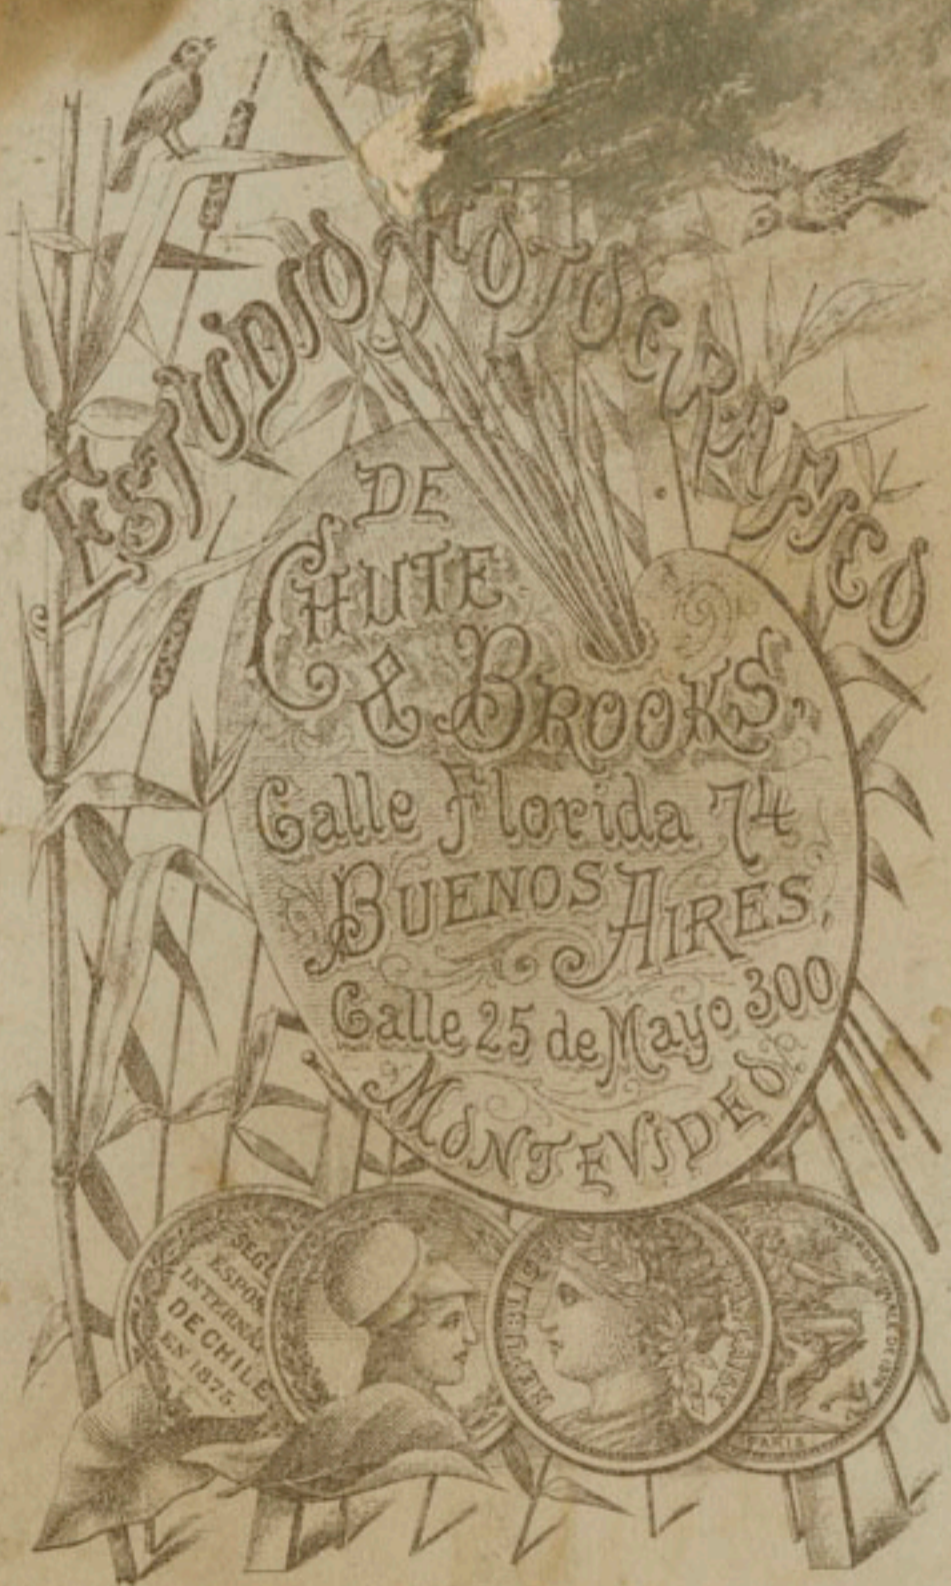 ESTUDIO FOTOGRAFICO
DE
CHUTE
& BROOKS,
Calle Florida 74
BUENOS AIRES,
Calle 25 de Mayo 300
MONTEVIDEO.
ESPOS
INTERNA
DE CHILE
EN 1875.
PARIS